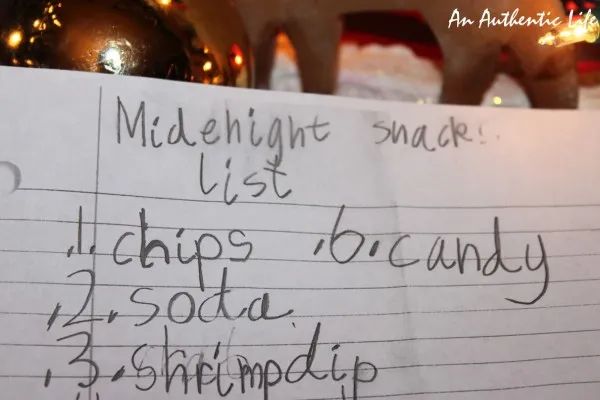 An Authentic Life
Midehight snack:.
list
.1. chips .6. candy
.2. soda.
.3. shrimp dip